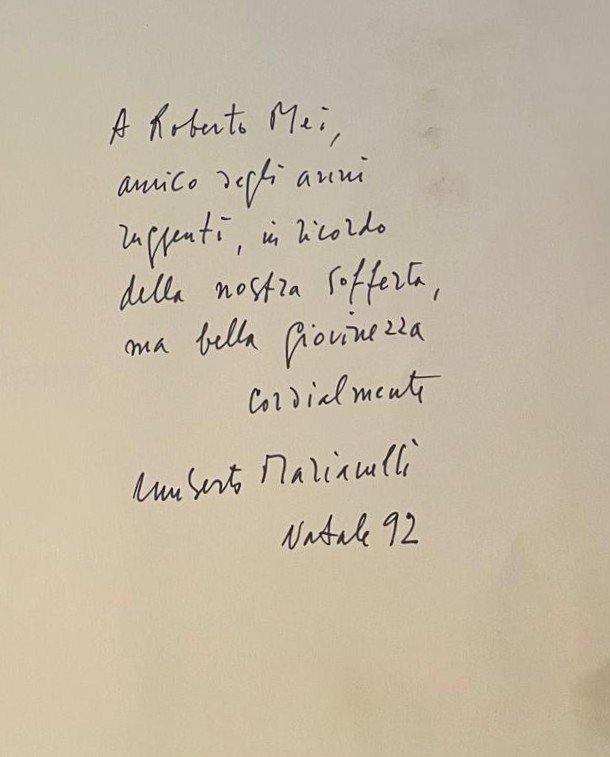 A Roberto Mei,
amico degli anni
ruggenti, in ricordo
della nostra sofferta,
ma bella giovinezza
cordialmente
Umberto Marianelli
Natale 92